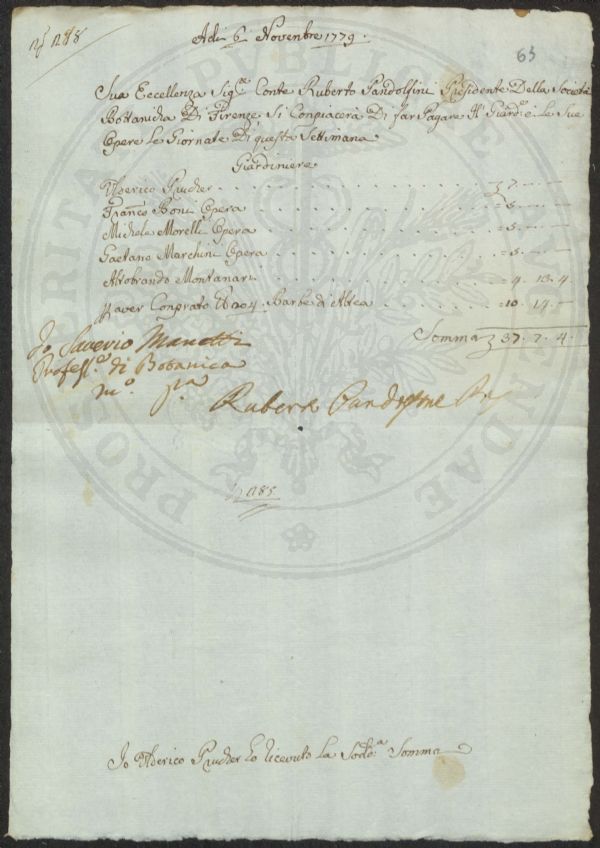 Adi 6 Novenbre 1779.
63
Sua Eccellenza Sig.ͬᵉ Conte Ruberto Pandolfini Presidente Della Società
Bottanicha Di Firenze Si Conpiacerà Di far Pagare Al Giard.ͤ e Le Sue
Opere Le Giornate Di questa Settimana
Giardiniere
Ulderico Prucher 7.
Franc.º Boni Opera 5.
Michele Morelli Opera 5.
Gaetano Marchini Opera 5.
Aldobrando Montanari 4. 13. 4
Haver Conprato 204. Barbe d'Altea 10. 14.
Somma 37. 7. 4.
Io Saverio Manetti
Profess.ᵉ di Botanica
m.º p.ª
Ruberto Pandolfini
1185
Io Ulderico Prucher ho ricevuto La Sodd.ª Somma
PROSPERITATI PUBLICAE AUGENDAE